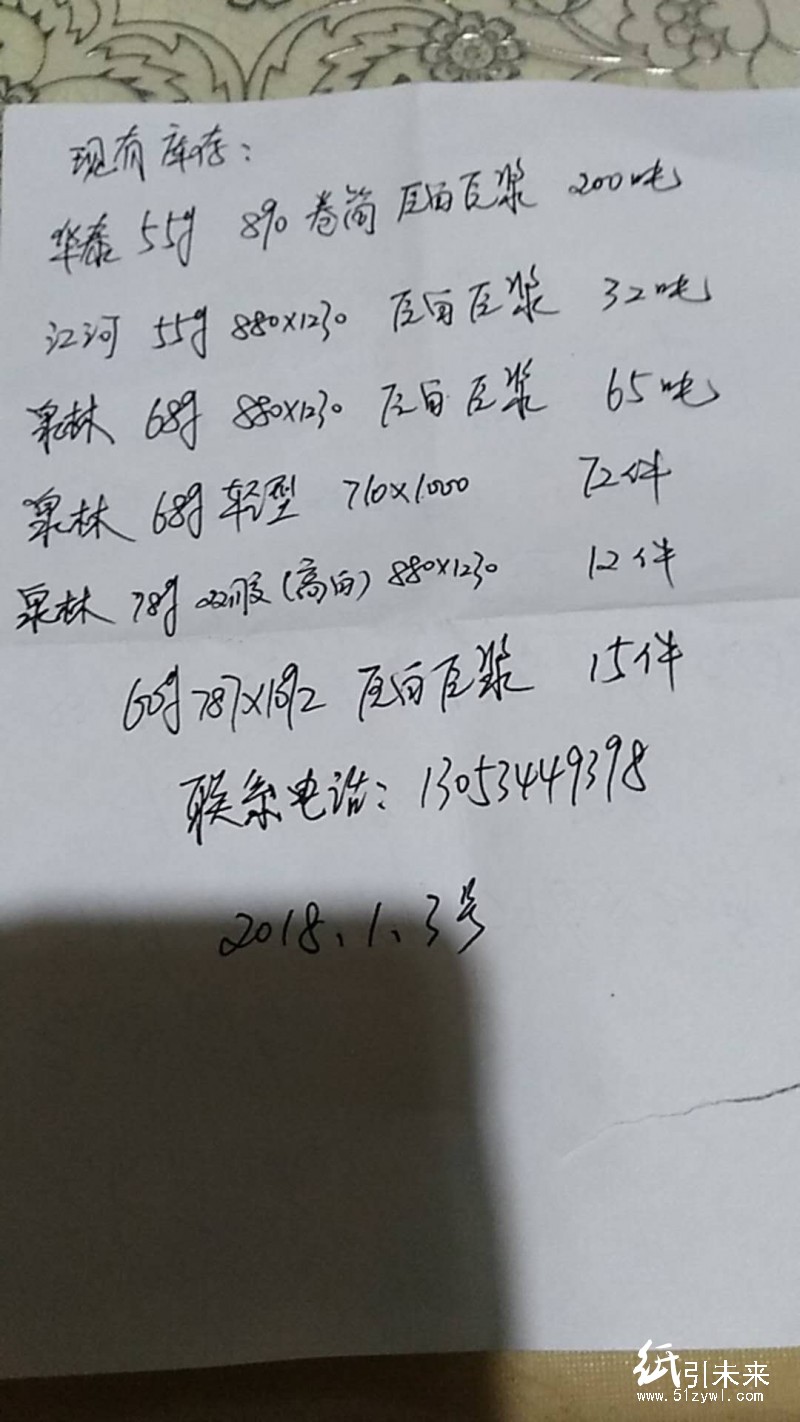 现有库存：
华泰 55g 890 卷筒 巨白巨浆 200吨
江河 55g 880×1230 巨白巨浆 32吨
泉林 68g 880×1230 巨白巨浆 65吨
泉林 68g 轻型 710×1000 72件
泉林 78g 双胶(高白) 880×1230 12件
60g 787×1092 巨白巨浆 15件
联系电话：13053449398
2018、1、3号
纸引未来
www.51zywl.com